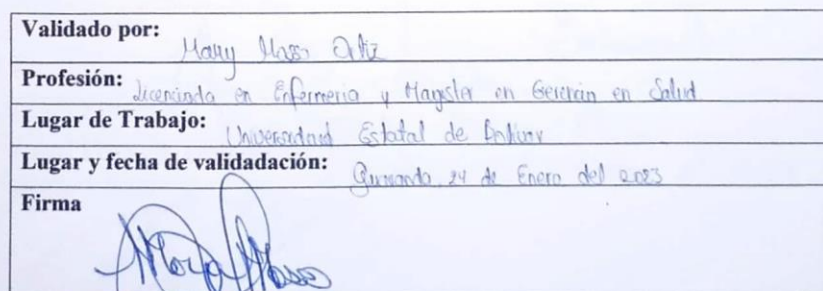 Validado por: Mary Mosso Ortiz
Profesión: Licenciada en Enfermeria y Magister en Gerencia en Salud
Lugar de Trabajo: Universidad Estatal de Bolivar
Lugar y fecha de validadación: Guaranda 24 de Enero del 2023
Firma